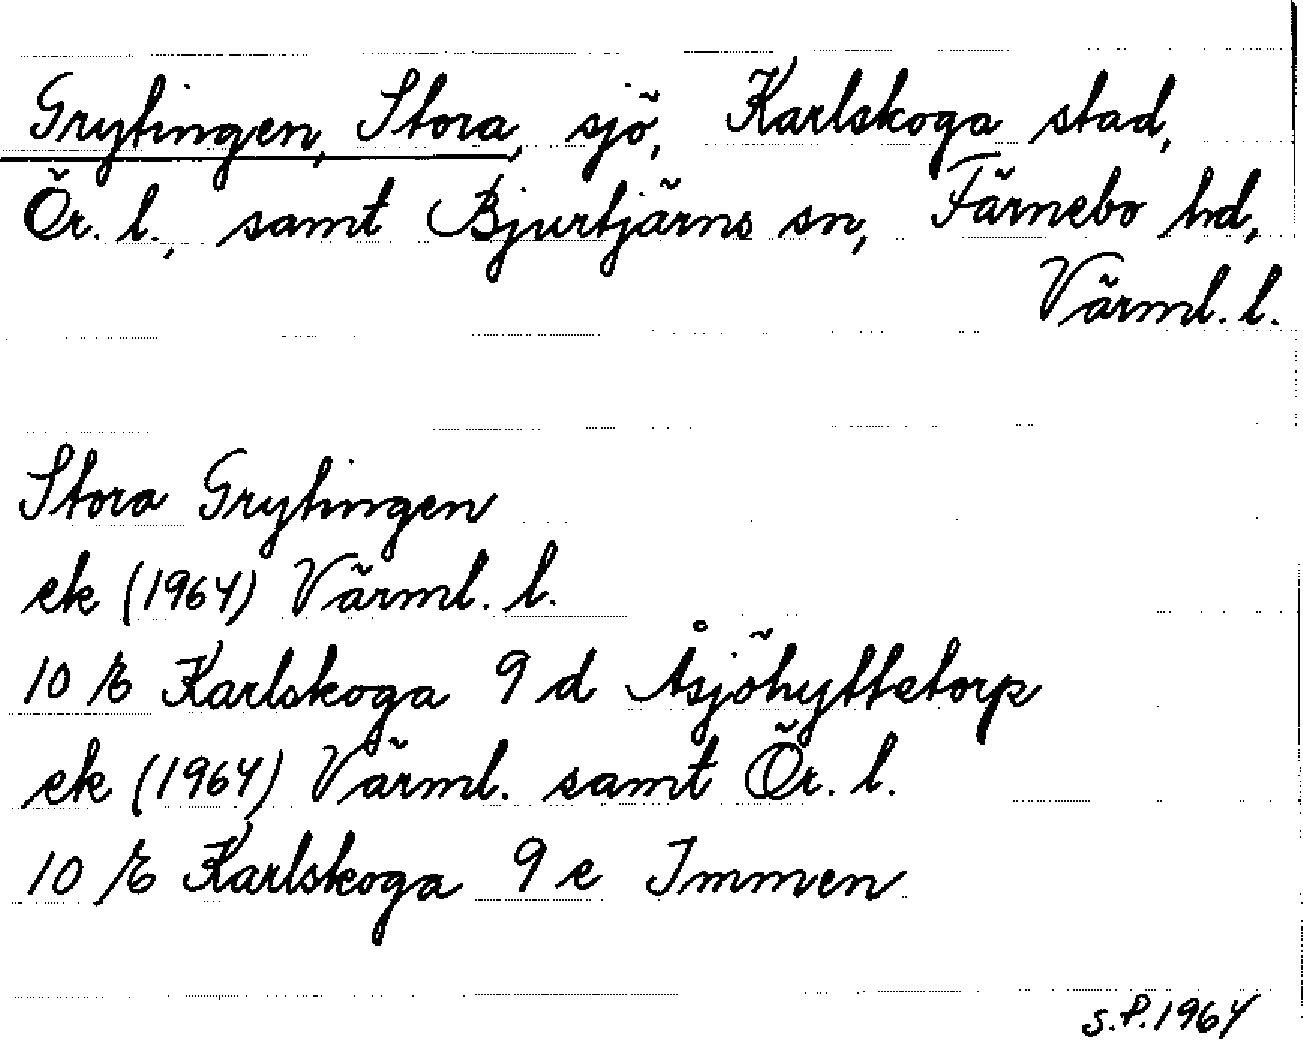 Grytingen, Stora, sjö, Karlskoga stad,
Ör. l., samt Bjurtjärns sn, Färnebo hd,
Värml. l.
Stora Grytingen
ek (1964) Värml. l.
10 E Karlskoga 9 d Åsjöhyttetorp
ek (1964) Värml. samt Ör. l.
10 E Karlskoga 9 e Immen
S.P. 1964